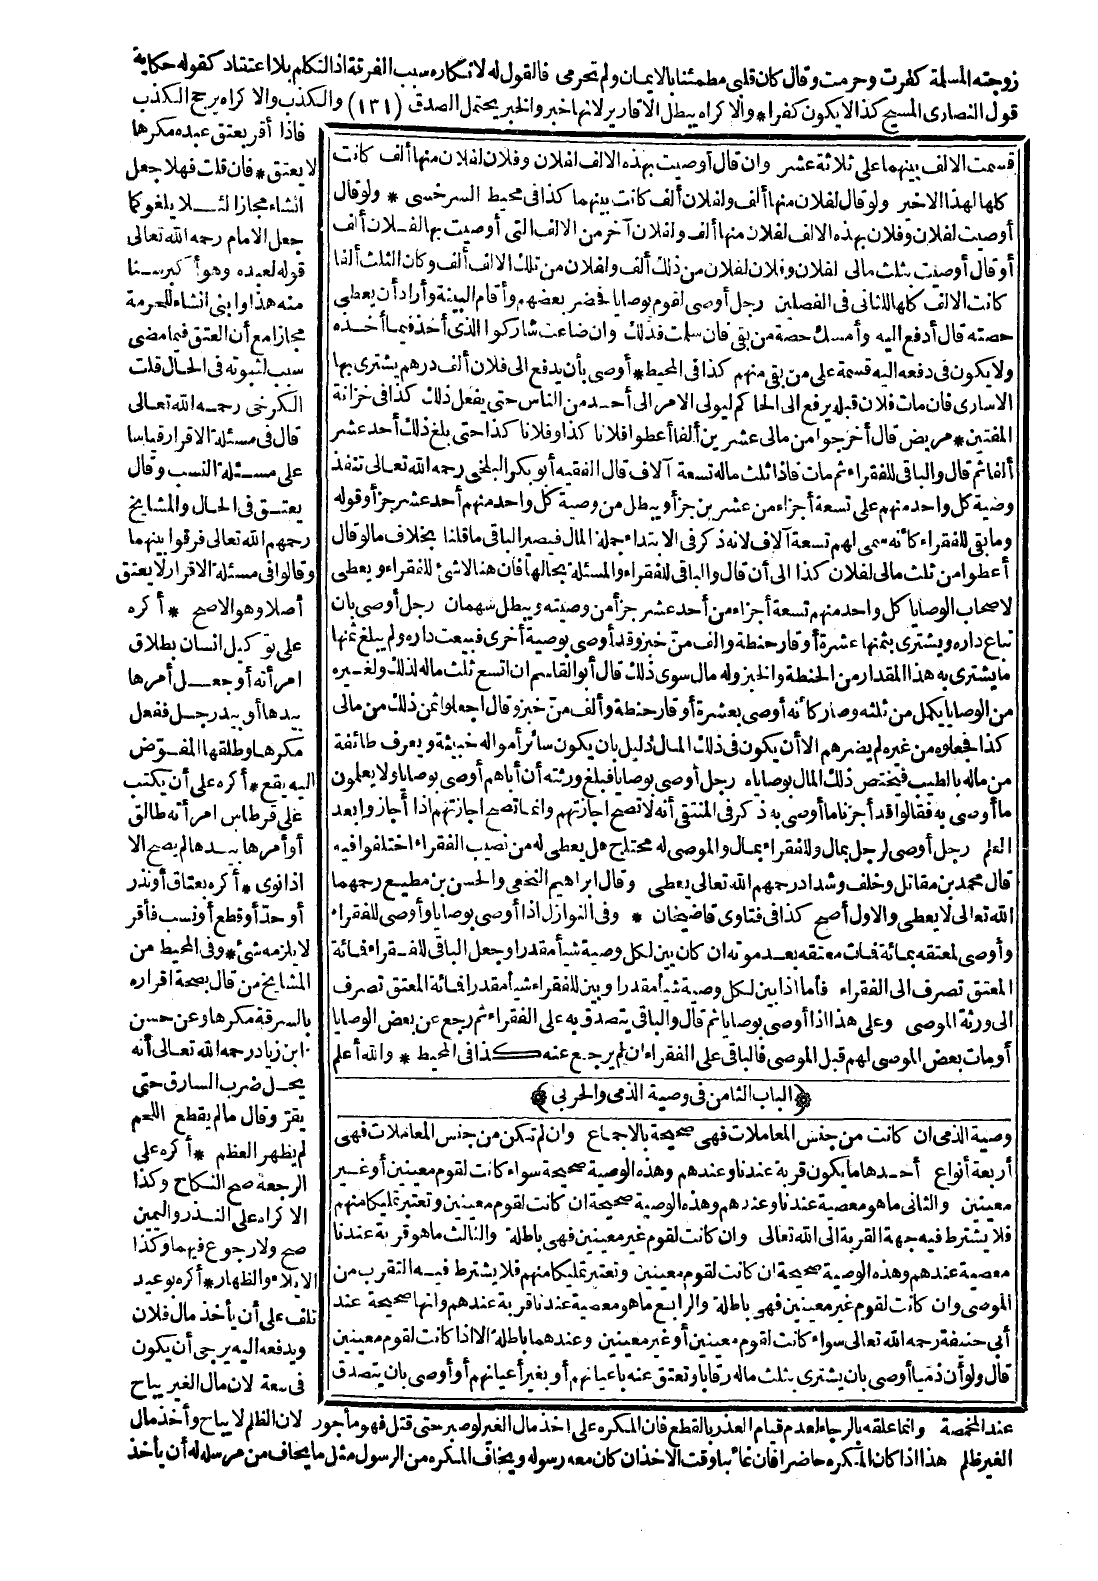 زوجته المسلمة كفرت وحرمت وقال كان قلبي مطمئنا بالايمان ولم تحرمي فالقول له لانكاره سبب الفرقة اذ التكلم بلا اعتقاد كقوله حكاية
قول النصارى المسيح كذا لا يكون كفرا * والاكراه يبطل الاقارير لانها خبر والخبر يحتمل الصدق (١٣١) والكذب والاكراه يرجح الكذب
فاذا أقر بعتق عبده مكرها
لا يعتق * فان قلت فهلا جعل
انشاء مجازا لئلا يلغو كما
جعل الامام رحمه الله تعالى
قوله لعبده وهو أكبر سنا
منه هذا ابنى انشاء للحرمة
مجازا مع أن العتق فيما مضى
سبب لثبوته في الحال قلت
الكرخى رحمه الله تعالى
قال في مسئلة الاقرار قياسا
على مسئلة النسب وقال
يعتق في الحال والمشايخ
رحمهم الله تعالى فرقوا بينهما
وقالوا في مسئلة الاقرار لا يعتق
أصلا وهو الاصح * أكره
على توكيل انسان بطلاق
امرأته أو جعل أمرها
بيدها أو بيد رجل ففعل
مكرها وطلقها المفوّض
اليه يقع * أكره على أن يكتب
على قرطاس امرأته طالق
أو أمرها بيدها لم يصح الا
اذا نوى * أكره بعتاق أو نذر
أو حد أو قطع أو نسب فأقر
لا يلزمه شئ * وفي المحيط من
المشايخ من قال بصحة اقراره
بالسرقة مكرها وعن حسن
ابن زياد رحمه الله تعالى أنه
يحل ضرب السارق حتى
يقرّ وقال ما لم يقطع اللحم
لم يظهر العظم * أكره على
الرجعة صح النكاح وكذا
الاكراه على النذر واليمين
صح ولا رجوع فيهما وكذا
الايلاء والظهار * أكره بوعيد
تلف على أن يأخذ مال فلان
ويدفعه اليه يرجى أن يكون
في سعة لان مال الغير يباح
قسمت الالف بينهما على ثلاثة عشر وان قال أوصيت بهذه الالف لفلان وفلان لفلان منها ألف كانت
كلها لهذا الاخير ولو قال لفلان منها ألف ولفلان ألف كانت بينهما كذا في محيط السرخسى * ولو قال
أوصيت لفلان وفلان بهذه الالف لفلان منها ألف ولفلان آخر من الالف التى أوصيت بها لفلان ألف
أو قال أوصيت بثلث مالى لفلان وفلان لفلان من ذلك ألف ولفلان من تلك الالف ألف وكان الثلث ألفا
كانت الالف كلها للثانى في الفصلين رجل أوصى لقوم بوصايا فحضر بعضهم وأقام البينة وأراد أن يعطى
حصته قال أدفع اليه وأمسك حصة من بقى فان سلمت فذلك وان ضاعت شاركوا الذى أخذ فيما أخذه
ولا يكون في دفعه اليه قسمة على من بقى منهم كذا في المحيط * أوصى بأن يدفع الى فلان ألف درهم يشترى بها
الاسارى فان مات فلان قبله يرفع الى الحاكم ليولى الامر الى أحد من الناس حتى يفعل ذلك كذا في خزانة
المفتين * مريض قال أخرجوا من مالى عشرين ألفا أعطوا فلانا كذا وفلانا كذا حتى بلغ ذلك أحد عشر
ألفا ثم قال والباقى للفقراء ثم مات فاذا ثلث ماله تسعة آلاف قال الفقيه أبو بكر البلخى رحمه الله تعالى تنفذ
وصية كل واحد منهم على تسعة أجزاء من عشرين جزأ ويبطل من وصية كل واحد منهم أحد عشر جزأ وقوله
وما بقى للفقراء كأنه سمى لهم تسعة آلاف لانه ذكر في الابتداء جملة المال فيصير الباقى ما قلنا بخلاف ما لو قال
أعطوا من ثلث مالى لفلان كذا الى أن قال والباقى للفقراء والمسئلة بحالها فان هنا لا شئ للفقراء ويعطى
لاصحاب الوصايا كل واحد منهم تسعة أجزاء من أحد عشر جزأ من وصيته ويبطل سهمان رجل أوصى بان
تباع داره ويشترى بثمنها عشرة أوقار حنطة وألف منّ خبز وقد أوصى بوصية أخرى فبيعت داره ولم يبلغ ثمنها
ما يشترى به هذا المقدار من الحنطة والخبز وله مال سوى ذلك قال أبو القاسم ان اتسع ثلث ماله لذلك ولغيره
من الوصايا يكمل من ثلثه وصار كأنه أوصى بعشرة أوقار حنطة وألف منّ خبز وقال اجعلوا ثمن ذلك من مالى
كذا فجعلوه من غيره لم يضرهم الا أن يكون في ذلك المال دليل بان يكون سائر أمواله خبيثة ويعرف طائفة
من ماله بالطيب فيختص ذلك المال بوصاياه رجل أوصى بوصايا فبلغ ورثته أن أباهم أوصى بوصايا ولا يعلمون
ما أوصى به فقالوا قد أجزنا ما أوصى به ذكر في المنتقى أنه لا تصح اجازتهم وانما تصح اجازتهم اذا أجازوا بعد
العلم رجل أوصى لرجل بمال وللفقراء بمال والموصى له محتاج هل يعطى له من نصيب الفقراء اختلفوا فيه
قال محمد بن مقاتل وخلف وشداد رحمهم الله تعالى يعطى وقال ابراهيم النخعى والحسن بن مطيع رحمهما
الله تعالى لا يعطى والاول أصح كذا في فتاوى قاضيخان * وفي النوازل اذا أوصى بوصايا وأوصى للفقراء
وأوصى لمعتقه بمائة فمات معتقه بعد موته ان كان بين لكل وصية شيأ مقدرا وجعل الباقى للفقراء فمائة
المعتق تصرف الى الفقراء فأما اذا بين لكل وصية شيأ مقدرا وبين للفقراء شيأ مقدرا فمائة المعتق تصرف
الى ورثة الموصى وعلى هذا اذا أوصى بوصايا ثم قال والباقى يتصدق به على الفقراء ثم رجع عن بعض الوصايا
أو مات بعض الموصى لهم قبل الموصى فالباقى على الفقراء ان لم يرجع عنه كذا في المحيط * والله أعلم
﴿الباب الثامن في وصية الذمى والحربى﴾
وصية الذمى ان كانت من جنس المعاملات فهى صحيحة بالاجماع وان لم تكن من جنس المعاملات فهى
أربعة أنواع أحدها ما يكون قربة عندنا وعندهم وهذه الوصية صحيحة سواء كانت لقوم معينين أو غير
معينين والثانى ما هو معصية عندنا وعندهم وهذه الوصية صحيحة ان كانت لقوم معينين وتعتبر تمليكا منهم
فلا يشترط فيه جهة القربة الى الله تعالى وان كانت لقوم غير معينين فهى باطلة والثالث ما هو قربة عندنا
معصية عندهم وهذه الوصية صحيحة ان كانت لقوم معينين وتعتبر تمليكا منهم فلا يشترط فيه التقرب من
الموصى وان كانت لقوم غير معينين فهى باطلة والرابع ما هو معصية عندنا قربة عندهم وانها صحيحة عند
أبى حنيفة رحمه الله تعالى سواء كانت لقوم معينين أو غير معينين وعندهما باطلة الا اذا كانت لقوم معينين
قال ولو أن ذميا أوصى بان يشترى بثلث ماله رقابا وتعتق عنه باعيانهم أو بغير أعيانهم أو أوصى بان يتصدق
عند المخمصة وانما علقه بالرجاء لعدم قيام العذر بالقطع فان المكره على اخذ مال الغير لو صبر حتى قتل فهو مأجور لان الظلم لا يباح وأخذ مال
الغير ظلم هذا اذا كان المكره حاضرا فان غائبا وقت الاخذ ان كان معه رسوله ويخاف المكره من الرسول مثل ما يخاف من مرسله له أن يأخذ